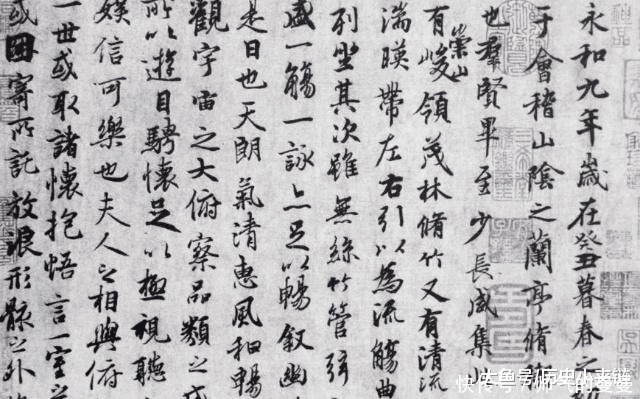 永和九年歲在癸丑暮春之初
于會稽山陰之蘭亭脩禊
也羣賢畢至少長咸集此
有崇山峻領茂林脩竹又有清流
湍暎帶左右引以為流觴曲
列坐其次雖無絲竹管弦
盛一觴一詠亦足以暢敘幽
是日也天朗氣清惠風和暢
觀宇宙之大俯察品類之盛
所以遊目騁懷足以極視聽
娛信可樂也夫人之相與俯
一世或取諸懷抱悟言一室之
或因寄所託放浪形骸之外